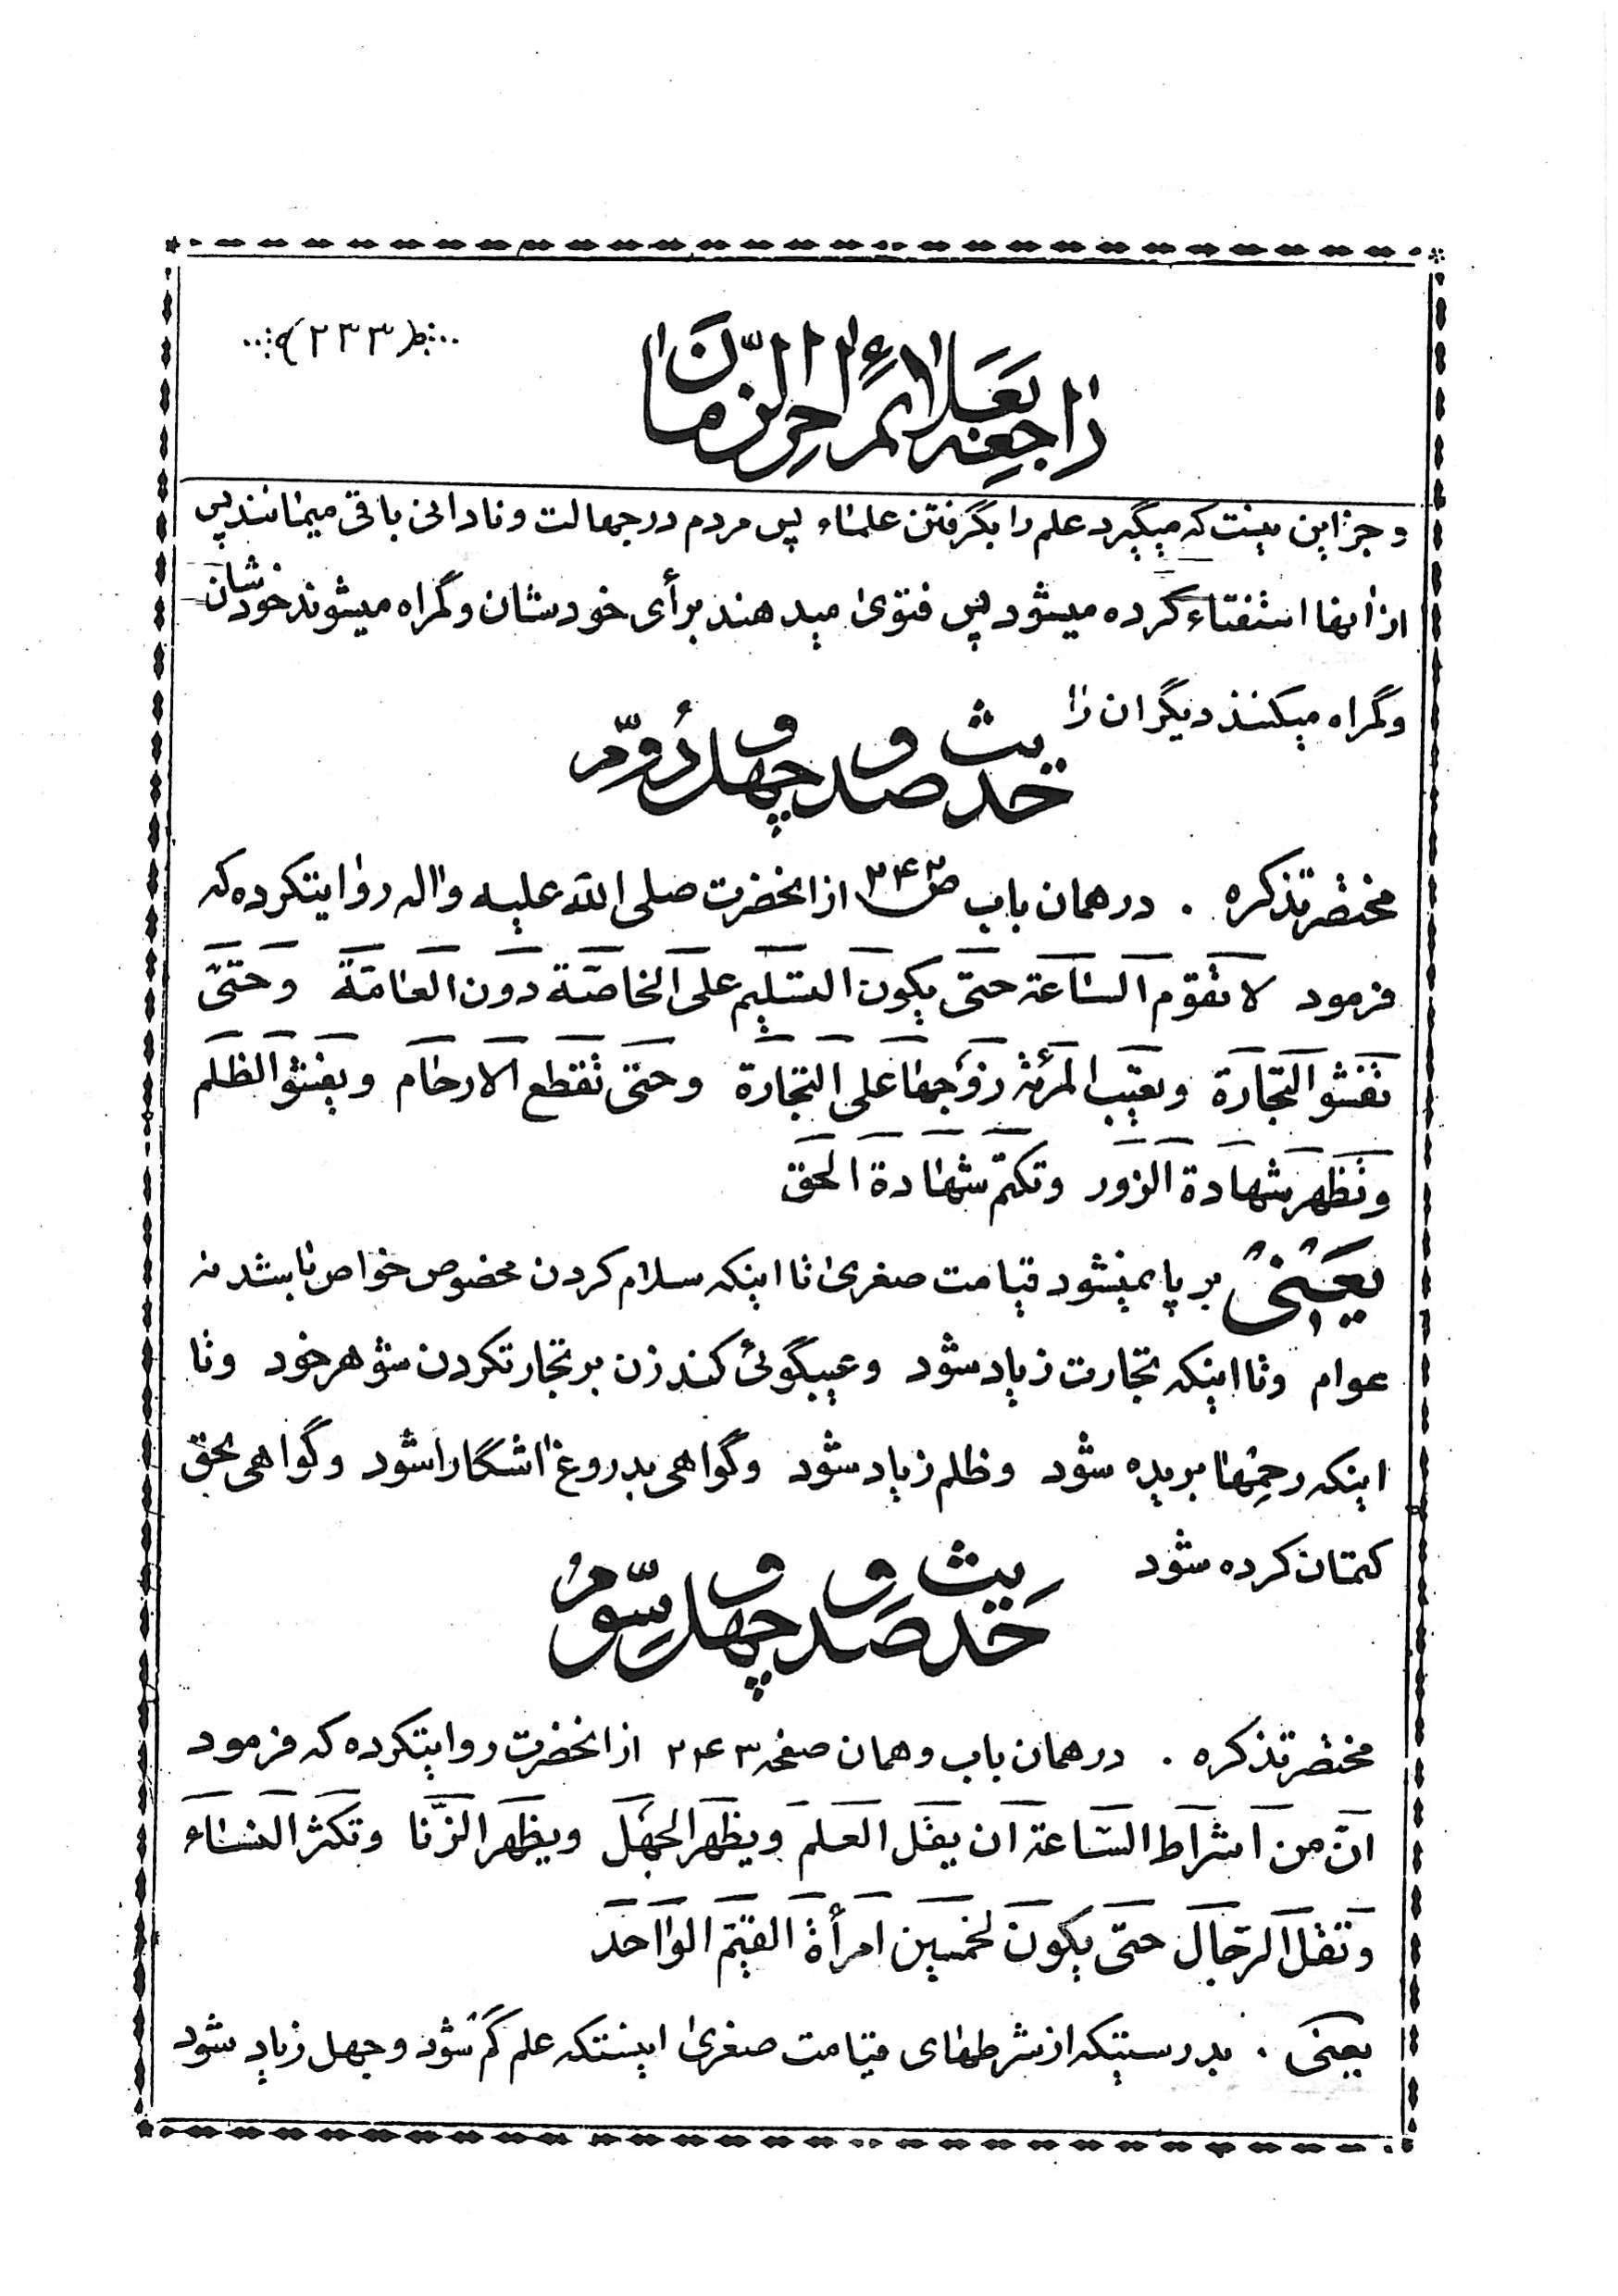 ﴿۲۳۳﴾
راجعه بعلائم اخر الزمان
و جز این نیست که میگیرد علم را بگرفتن علماء پس مردم در جهالت و نادانی باقی میمانند پس
از انها استفتاء کرده میشود پس فتوی میدهند برأی خودشان و گمراه میشوند خودشان
و گمراه میکنند دیگران را
حدیث صد و چهل و دوّم
مختصر تذکره . در همان باب ص۲۴۳ از انحضرت صلی الله علیه و اله روایتکرده که
فرمود لا تقوم الساعة حتی یکون التسلیم علی الخاصّة دون العامّة و حتّی
تفشو التجارة و تعیب المرئة زوجها علی التجارة و حتی تقطع الارحام و یفشو الظلم
و تظهر شهادة الزور و تکتم شهادة الحق
یعنی بر پا نمیشود قیامت صغری تا اینکه سلام کردن مخصوص خواص باشد نه
عوام و تا اینکه تجارت زیاد شود و عیبگوئی کند زن بر تجارتکردن شوهر خود و تا
اینکه رحمها بریده شود و ظلم زیاد شود و گواهی بدروغ اشکارا شود و گواهی بحق
کتمان کرده شود
حدیث صد و چهل و سوّم
مختصر تذکره . در همان باب و همان صفحه ۲۴۳ از انحضرت روایتکرده که فرمود
انّ من اشراط السّاعة ان یقل العلم و یظهر الجهل و یظهر الزّنا و تکثر النساء
و تقل الرّجال حتّی یکون لخمسین امرأة القیّم الواحد
یعنی . بدرستیکه از شرطهای قیامت صغری اینستکه علم کم شود و جهل زیاد شود